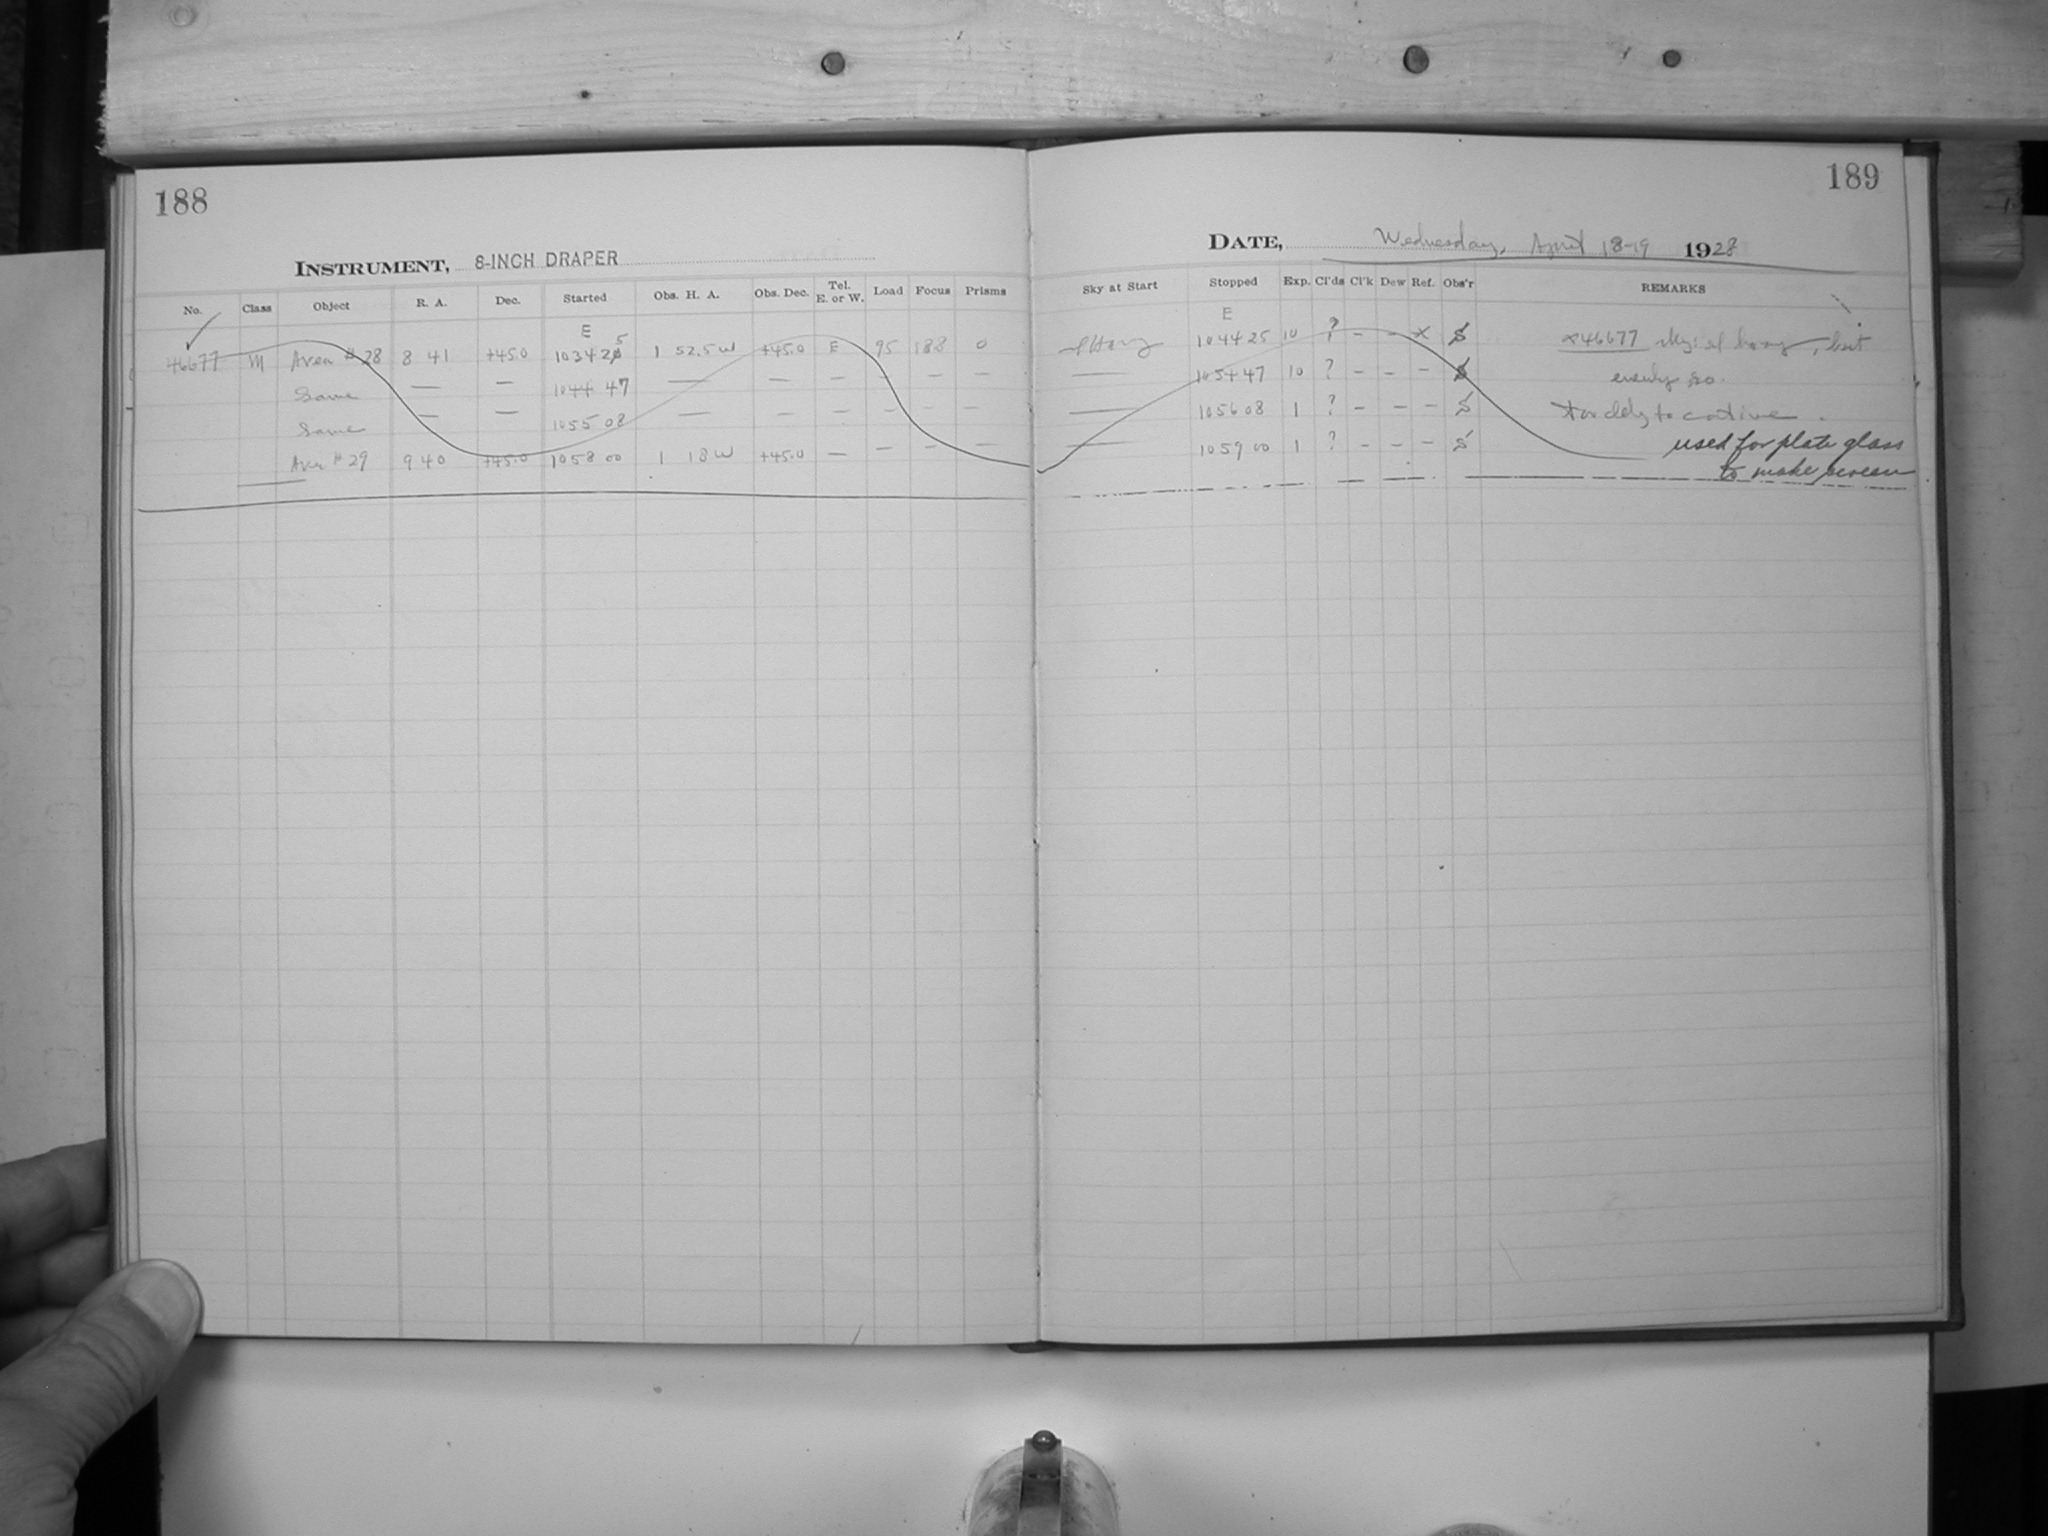 188
INSTRUMENT, 8-INCH DRAPER
No. Class Object R. A. Dec. Started Obs. H. A. Obs. Dec. Tel. E. or W. Load Focus Prisms
E
46677 M Area #28 8 41 +45.0 10 34 25 1 52.5 W +45.0 E 95 188 0
Same — — 10 44 47 — — — — — —
Same — — 10 55 08 — — — — — —
Area #29 9 40 +45.0 10 58 00 1 18 W +45.0 — — — —
189
DATE, Wednesday, April 18-19 1928
Sky at Start Stopped Exp. Cl'ds Cl'k Dew Ref. Obs'r REMARKS
E
sl Hazy 10 44 25 10 ? — — X S x46677 sky: sl hazy, but
— 10 54 47 10 ? — — — S evenly so.
— 10 56 08 1 ? — — — S to continue.
— 10 59 00 1 ? — — — S used for plate glass
to make screen